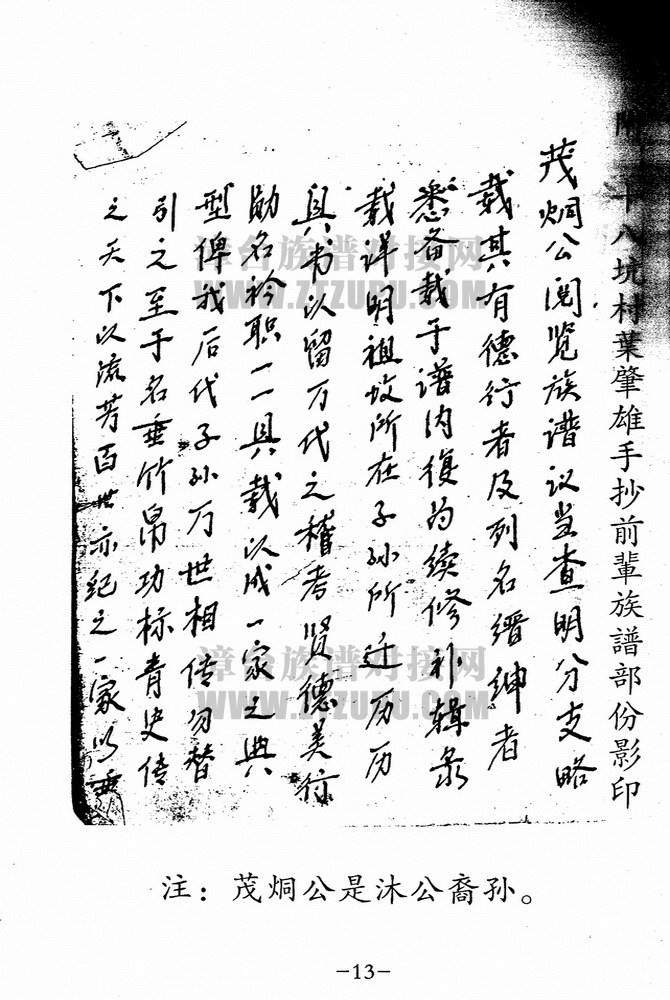 十八坑村葉肇雄手抄前輩族譜部份影印
茂烔公阅览族谱议当查明分支略
载其有德行者及列名缙绅者
悉备载于谱内復为续修补辑录
载详明祖坟所在子孙所迁历历
具书以留万代之稽考贤德美行
勋名衿职一一具载以成一家之典
型俾我后代子孙万世相传勿替
引之至于名垂竹帛功标青史传
之天下以流芳百世亦纪之一家以垂
漳台族谱对接网
WWW.ZTZUPU.COM
漳台族谱对接网
WWW.ZTZUPU.COM
注：茂烔公是沐公裔孙。
-13-